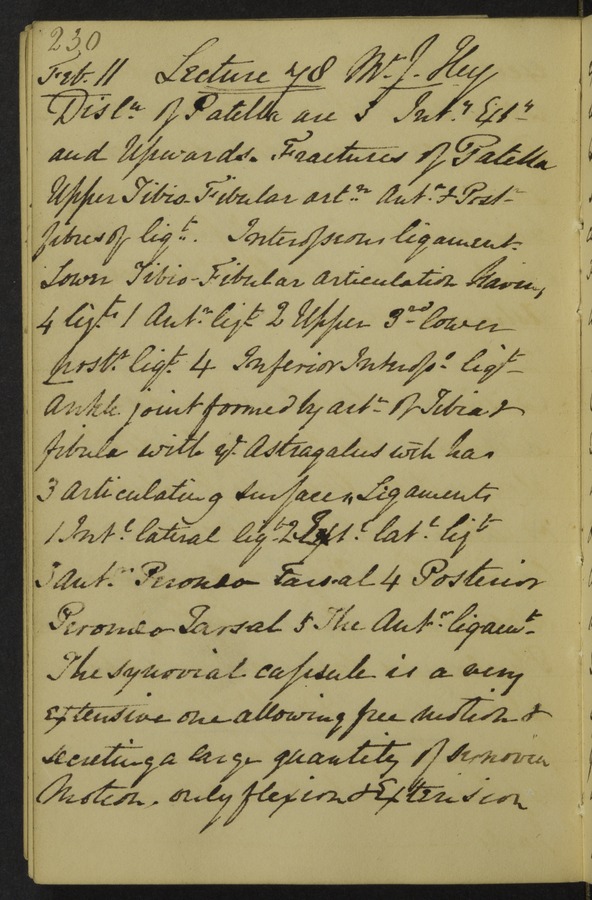 230
Feb. 11 Lecture 48 Mr. J. Hey
Disln. of Patella are 3 Int.r Ext.r
and Upwards. Fractures of Patella
Upper Tibio-Fibular artn. Ant.r & Post.
fibres of ligt. Interosseous ligament.
Lower Tibio-Fibular articulation having
4 ligts. 1 Ant.r ligt. 2 Upper 3rd lower
post.r ligt. 4 Inferior Inteross.s ligt.
Ankle joint formed by artn. of Tibia &
fibula with ye. Astragalus wh. has
3 articulating surfaces, Ligaments
1 Int.l lateral ligt. 2 Ext.l lat.l ligt
3 Ant.r Peroneo Tarsal 4 Posterior
Peroneo Tarsal 5 The Ant.r ligamt.
The synovial capsule is a very
extensive one allowing free motion &
secreting a large quantity of synovia
Motion. only flexion & Extension